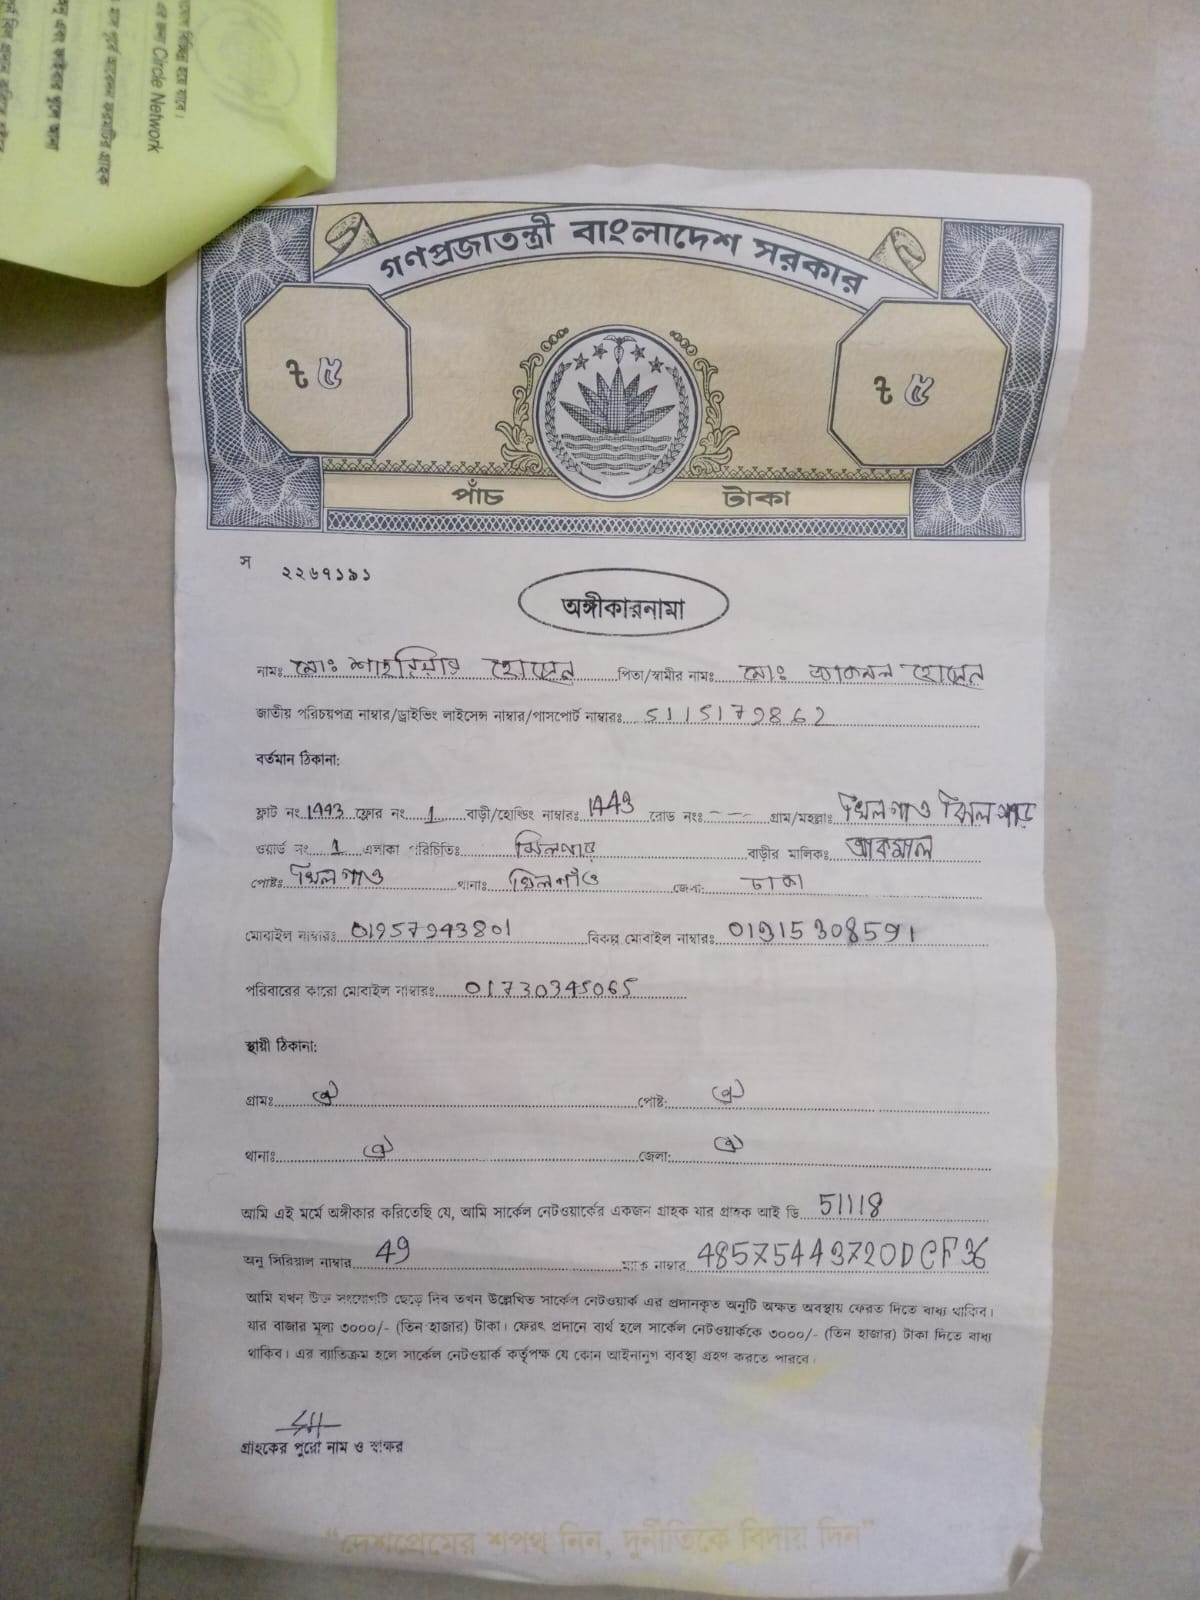 এর জন্য Circle Network
গণপ্রজাতন্ত্রী বাংলাদেশ সরকার
৳ ৫
৳ ৫
পাঁচ টাকা
স ২২৬৭১৯১
অঙ্গীকারনামা
নামঃ মোঃ শাহরিয়ার হোসেন পিতা/স্বামীর নামঃ মোঃ হোসেন
জাতীয় পরিচয়পত্র নাম্বার/ড্রাইভিং লাইসেন্স নাম্বার/পাসপোর্ট নাম্বারঃ 5115172862
বর্তমান ঠিকানা:
ফ্লাট নং 1443 ফ্লোর নং 1 বাড়ী/হোল্ডিং নাম্বারঃ 1443 রোড নংঃ --- গ্রাম/মহল্লাঃ খিলগাও ঝিলপাড়
ওয়ার্ড নং 1 এলাকা পরিচিতিঃ ঝিলপাড় বাড়ীর মালিকঃ আকমাল
পোষ্টঃ খিলগাও থানাঃ খিলগাঁও জেলা: ঢাকা
মোবাইল নাম্বারঃ 01957943801 বিকল্প মোবাইল নাম্বারঃ 01915308591
পরিবারের কারো মোবাইল নাম্বারঃ 01730345065
স্থায়ী ঠিকানা:
গ্রামঃ ঐ পোষ্ট: ঐ
থানাঃ ঐ জেলা: ঐ
আমি এই মর্মে অঙ্গীকার করিতেছি যে, আমি সার্কেল নেটওয়ার্কের একজন গ্রাহক যার গ্রাহক আই ডি 51118
অনু সিরিয়াল নাম্বার 49 ম্যাক নাম্বার 48575443720DCF36
আমি যখন উক্ত সংযোগটি ছেড়ে দিব তখন উল্লেখিত সার্কেল নেটওয়ার্ক এর প্রদানকৃত অনুটি অক্ষত অবস্থায় ফেরত দিতে বাধ্য থাকিব।
যার বাজার মূল্য ৩০০০/- (তিন হাজার) টাকা। ফেরৎ প্রদানে ব্যর্থ হলে সার্কেল নেটওয়ার্ককে ৩০০০/- (তিন হাজার) টাকা দিতে বাধ্য
থাকিব। এর ব্যতিক্রম হলে সার্কেল নেটওয়ার্ক কর্তৃপক্ষ যে কোন আইনানুগ ব্যবস্থা গ্রহণ করতে পারবে।
গ্রাহকের পুরো নাম ও স্বাক্ষর
"দেশপ্রেমের শপথ নিন, দুর্নীতিকে বিদায় দিন"